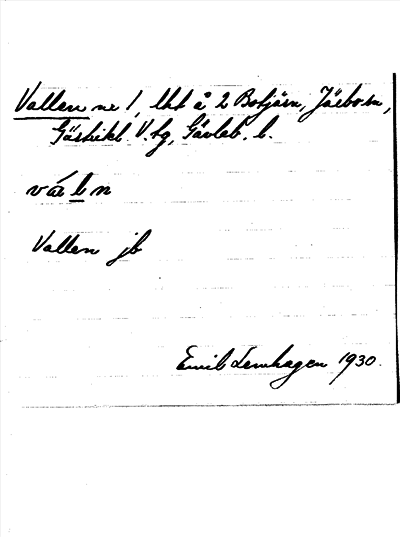 Vallen nr 1, lht å 2 Botjärn, Järbo sn,
Gästrikl. V. tg, Gävleb. l.
vál̲n
Vallen jb
Emil Lenhagen 1930.